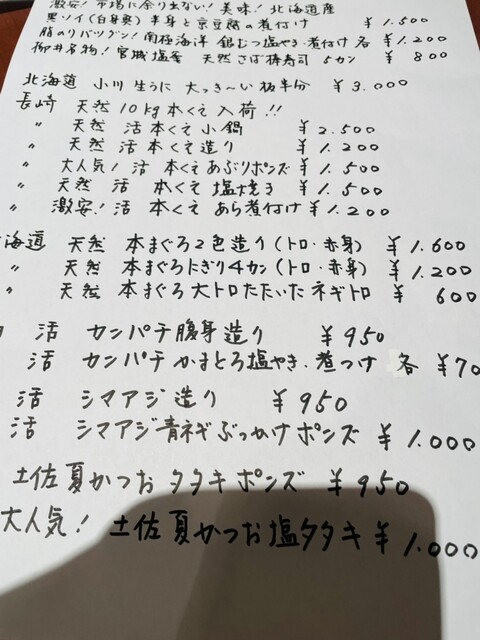 激安! 市場に余り出ない! 美味! 北海道産
黒ソイ(白身魚)半身と京豆腐の煮付け ¥1.500
脂のりバツグン! 南極海洋 銀むつ塩やき・煮付け 各 ¥1.200
柳井名物! 宮城塩釜 天然さば棒寿司 5カン ¥800
北海道 小川 生うに 大っき〜い 板半分 ¥3.000
長崎 天然 10kg本くえ入荷!!
〃 天然 活 本くえ小鍋 ¥2.500
〃 天然 活 本くえ造り ¥1.200
〃 大人気! 活 本くえあぶりポンズ ¥1.500
〃 天然 活 本くえ 塩焼き ¥1.500
〃 激安! 活 本くえ あら煮付け ¥1.200
海道 天然 本まぐろ2色造り(トロ・赤身) ¥1.600
〃 天然 本まぐろにぎり4カン(トロ・赤身) ¥1.200
〃 天然 本まぐろ大トロたたいたネギトロ ¥600
活 カンパチ腹身造り ¥950
活 カンパチかまとろ塩やき・煮つけ 各 ¥70
活 シマアジ造り ¥950
活 シマアジ青ネギぶっかけポンズ ¥1.000
土佐夏かつおタタキポンズ ¥950
大人気! 土佐夏かつお塩タタキ ¥1.000